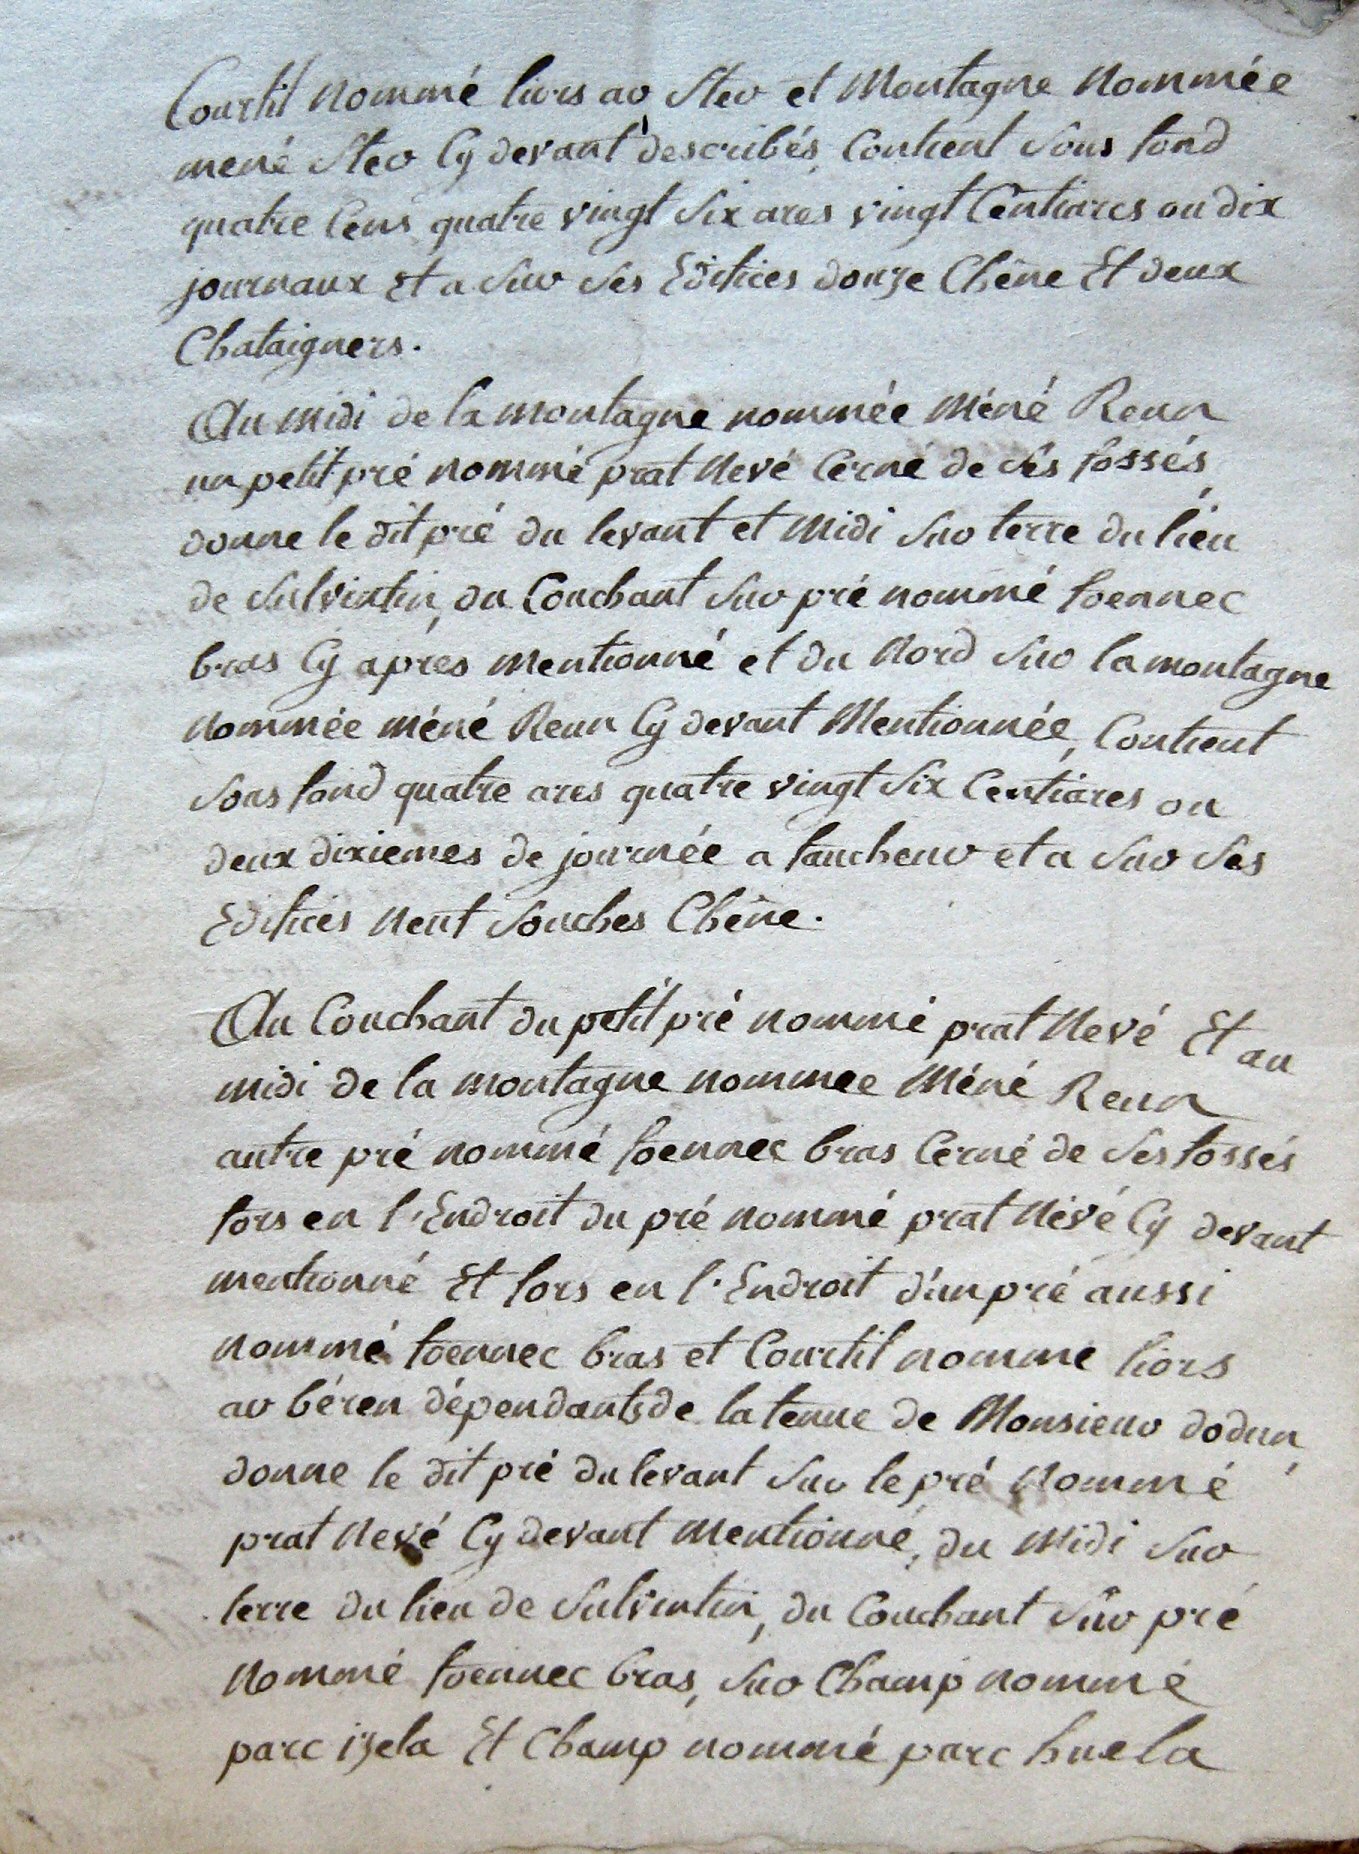 Courtil nommé liors ar Ster et Montagne nommée
mené Ster Cy devant describés, Contient Sous fond
quatre Cens quatre vingt Six ares vingt Centiares ou dix
journaux Et a Sur Ses Edifices douze Chêne Et deux
Chataigners.
Au midi de la montagne nommée Méné Reun
un petit pré nommé prat Nevé Cerné de Ses fossés,
donne le dit pré du levant et Midi Sur terre du lieu
de Sulvintin, du Couchant Sur pré nommé foennec
bras Cy après mentionné et du Nord Sur la montagne
nommée méné Reun Cy devant Mentionnée, Contient
Sous fond quatre ares quatre vingt Six Centiares ou
deux dixiemes de journée a faucheur et a Sur Ses
Edifices Neuf Souches Chêne.
Au Couchant du petit pré nommé prat Nevé Et au
midi de la montagne nommee Méné Reun
autre pré nommé foennec bras Cerné de Ses fossés
fors en l'Endroit du pré nommé prat Névé Cy devant
mentionné Et fors en l'Endroit d'un pré aussi
nommé foennec bras et Courtil nomme liors
ar béren dépendants de la tenue de Monsieur dodun,
donne le dit pré du levant Sur le pré Nommé
prat Nevé Cy devant mentionné, du Midi Sur
terre du lieu de Sulvintin, du Couchant Sur pré
Nommé foennec bras, Sur Champ nommé
parc izela Et Champ nommé parc huela